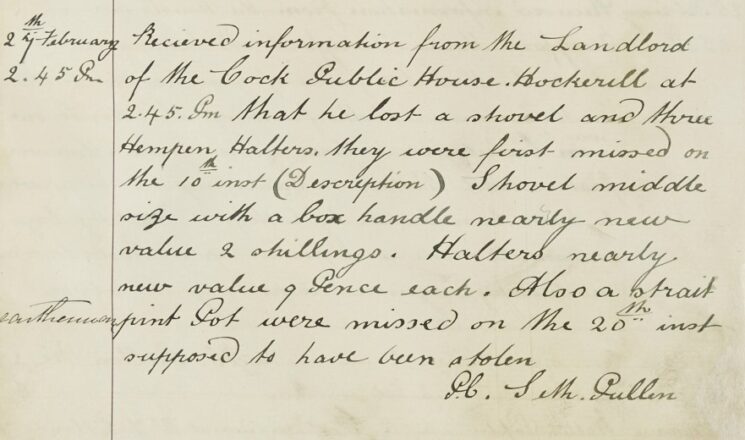 27th February
2.45 Pm
Recieved information from the Landlord
of the Cock Public House. Hockerill at
2.45. Pm that he lost a shovel and three
Hempen Halters. they were first missed on
the 10th inst (Description) Shovel middle
size with a box handle nearly new
value 2 shillings. Halters nearly
new value 9 Pence each. Also a strait
pint Pot were missed on the 20th inst
supposed to have been stolen
P.C. Seth. Pullen